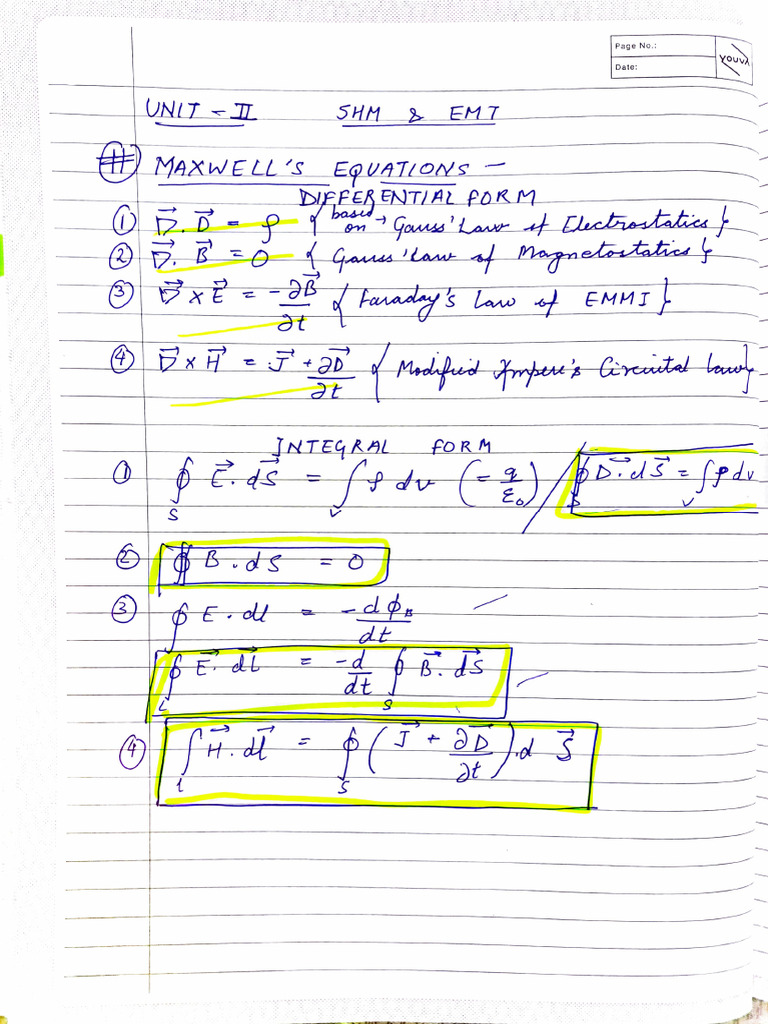 Page No.:
Date:
YOUVA
UNIT - II SHM & EMT
# MAXWELL'S EQUATIONS -
DIFFERENTIAL FORM
① ∇⃗. D⃗ = ρ { based on → Gauss' Law of Electrostatics }
② ∇⃗. B⃗ = 0 { Gauss' Law of Magnetostatics }
③ ∇⃗ × E⃗ = -∂B⃗/∂t { Faraday's Law of EMMI }
④ ∇⃗ × H⃗ = J⃗ + ∂D⃗/∂t { Modified Ampere's Circuital Law }
INTEGRAL FORM
① ∮_S E⃗. dS⃗ = ∫_v ρ dv (= q/ε₀) / ∮_S D⃗. dS⃗ = ∫_v ρ dv
② ∯ B . dS = 0
③ ∮ E . dl = -dϕ_B/dt
∮_L E⃗. dl⃗ = -d/dt ∮_S B⃗. dS⃗
④ ∫_l H⃗. dl⃗ = ∮_S (J⃗ + ∂D⃗/∂t).d S⃗